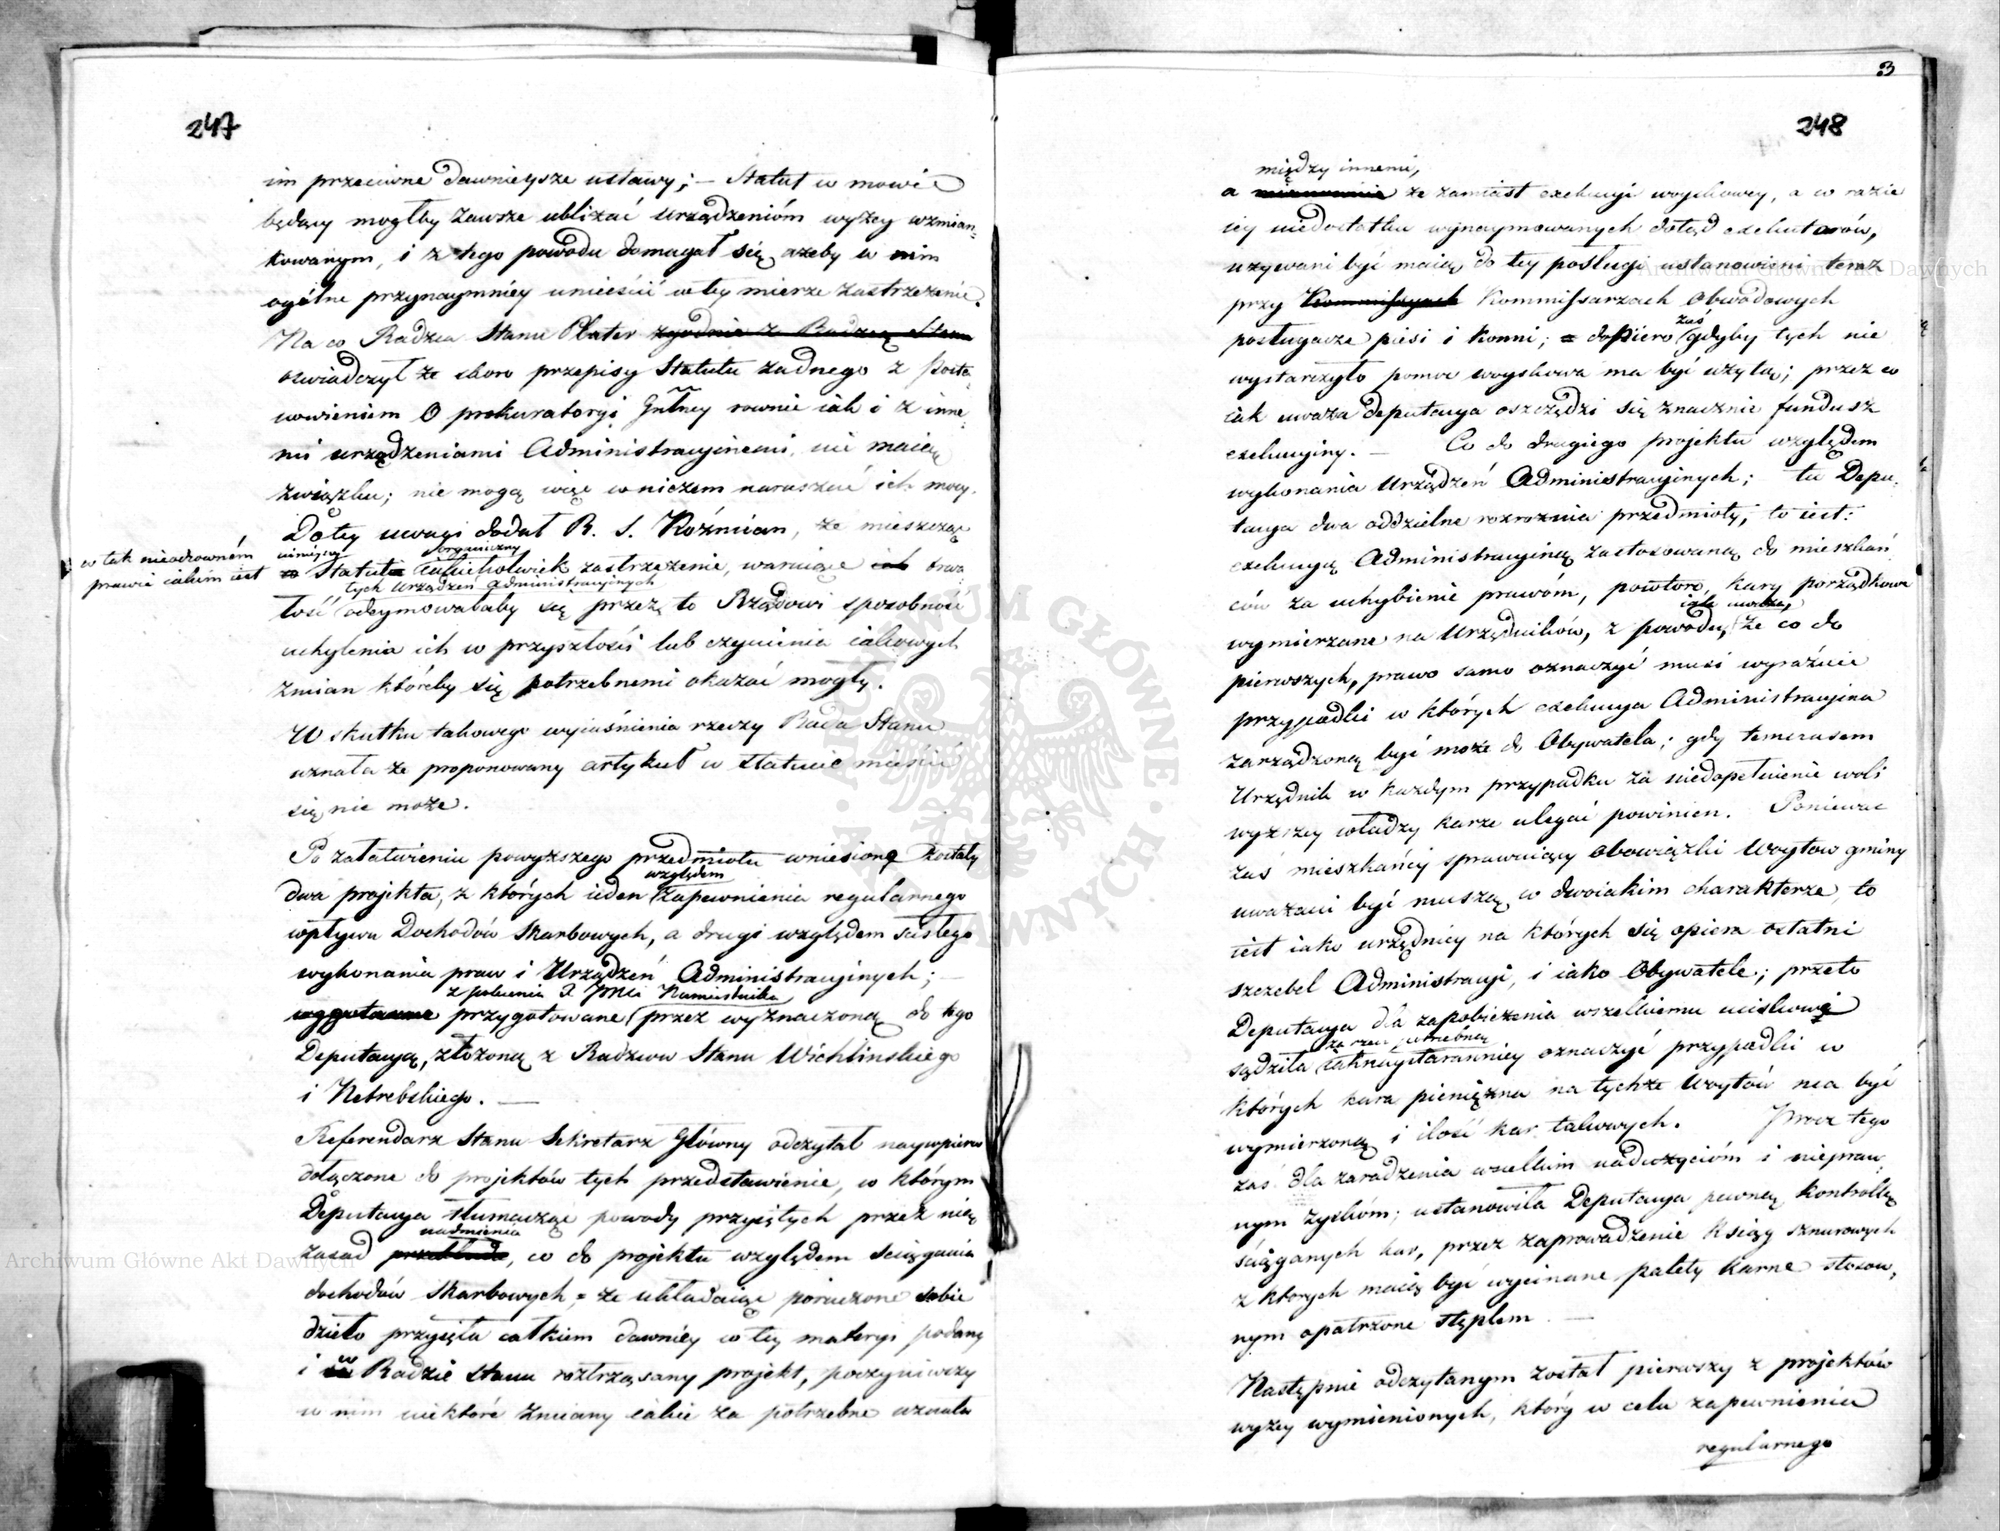 247
im przeciwne dawnieysze ustawy; – Statut w mowie
będący mogłby zawsze ubliżać urządzeniom wyżey wzmian-
kowanym, i z tego powodu domagał się ażeby w nim
ogólne przynaymniéy umieścić w tey mierze zastrzeżenie.
Na co Radzca Stanu Plater zgodnie z Radzcą Stanu
oswiadczył że skoro przepisy Statutu żadnego z Posta-
nowieniem O prokuratoryi Gnlney rownie iak i z inne-
mi urządzeniami Administracyinemi, nie maią
związku; nie mogą więc w niczem naruszać ich mocy.
Do tey uwagi dodał R. S. Koźmian, że mieszcząc
w tak nieodzowném
prawie iakim iest
ninieyszy organiczny
Statut iakiekolwiek zastrzeżenie, waruiące ich trwa-
tych Urządzeń Administracyinych
łość odeymowałaby się przez to Rządowi sposobność
uchylenia ich w przyszłości lub czynienia iakowych
zmian któreby się potrzebnemi okazać mogły.
W skutku takowego wyiaśnienia rzeczy Rada Stanu
uznała że proponowany artykuł w statucie mieścić
się nie może.
Po załatwieniu powyższego przedmiotu wniesione zostały
względem
dwa projekta, z których ieden zapewnienia regularnego
wpływu Dochodów Skarbowych, a drugi względem scisłego
wykonania praw i Urządzeń Administracyinych; –
z polecenia J. Xcia Namiestnika
wygotowane przygotowane przez wyznaczoną do tego
Deputacyą, złożoną z Radzców Stanu Wichlinskiego
i Netrebskiego. —
Referendarz Stanu Sekretarz Główny odczytał naypierw
dołączone do projektów tych przedstawienie, w którym
Deputacya tłumacząc powody przyiętych przez nią
nadmienia
zasad przekłada, co do projektu względem sciągania
dochodów Skarbowych, że układaiąc poruczone sobie
dzieło przyięła całkiem dawniéy w tey materyi podany
w
i na Radzie Stanu roztrząsany projekt, poczyniwszy
w nim niektóre zmiany iakie za potrzebne uznała
3
248
między innemi,
a mianowicie że zamiast exekucyi woyskowey, a w razie
iey niedostatku wynaymowanych dotąd exekutorów,
używani być maią do tey posługi ustanowieni teraz
przy Kommissyach Kommissarzach Obwodowych
zaś
posługacze piesi i konni; a dopiero gdyby tych nie
wystarczyło pomoc woyskowa ma być użytą; przez co
iak uważa Deputacya oszczędzi się znacznie fundusz
exekucyiny. – Co do drugiego projektu względem
wykonania Urządzeń Administracyinych; tu Depu-
tacya dwa oddzielne rozróżnia przedmioty, to iest:
exekucyą Administracyiną zastosowaną do mieszkań-
ców za uchybienie prawom, powtore, kary porządkowe
iak uważa,
wymierzane na Urzędników, z powodu, że co do
pierwszych, prawo samo oznaczyć musi wyraźnie
przypadki w których exekucya Administracyina
zarządzoną być może do Obywatela; gdy tymczasem
Urzędnik w każdym przypadku za niedopełnienie woli
wyższey władzy karze ulegać powinien. Ponieważ
zaś mieszkańcy sprawuiący obowiązki Woytów gminy
uważani być muszą w dwoiakim charakterze, to
iest iako urzędnicy na których się opiera ostatni
szczebel Administracyi, i iako Obywatele; przeto
Deputacya dla zapobieżenia wszelkiemu uciskowi
za rzecz potrzebną
sądziła iaknaystaranniey oznaczyć przypadki w
których kara pieniężna na tychże Woytów ma być
wymierzoną i ilość kar takowych. Prócz tego
zaś dla zaradzenia wszelkim nadużyciom i niepraw-
nym zyskom; ustanowiła Deputacya pewną kontrollę
ściąganych kar, przez zaprowadzenie Ksiąg sznurowych
z których maią być wycinane palety karne stosow-
nym opatrzone stęplem. —
Następnie odczytanym został pierwszy z projektów
wyżey wymienionych, który w celu zapewnienia
regularnego
Archiwum Główne Akt Dawnych
Archiwum Główne Akt Dawnych
ARCHIWUM GŁÓWNE AKT DAWNYCH